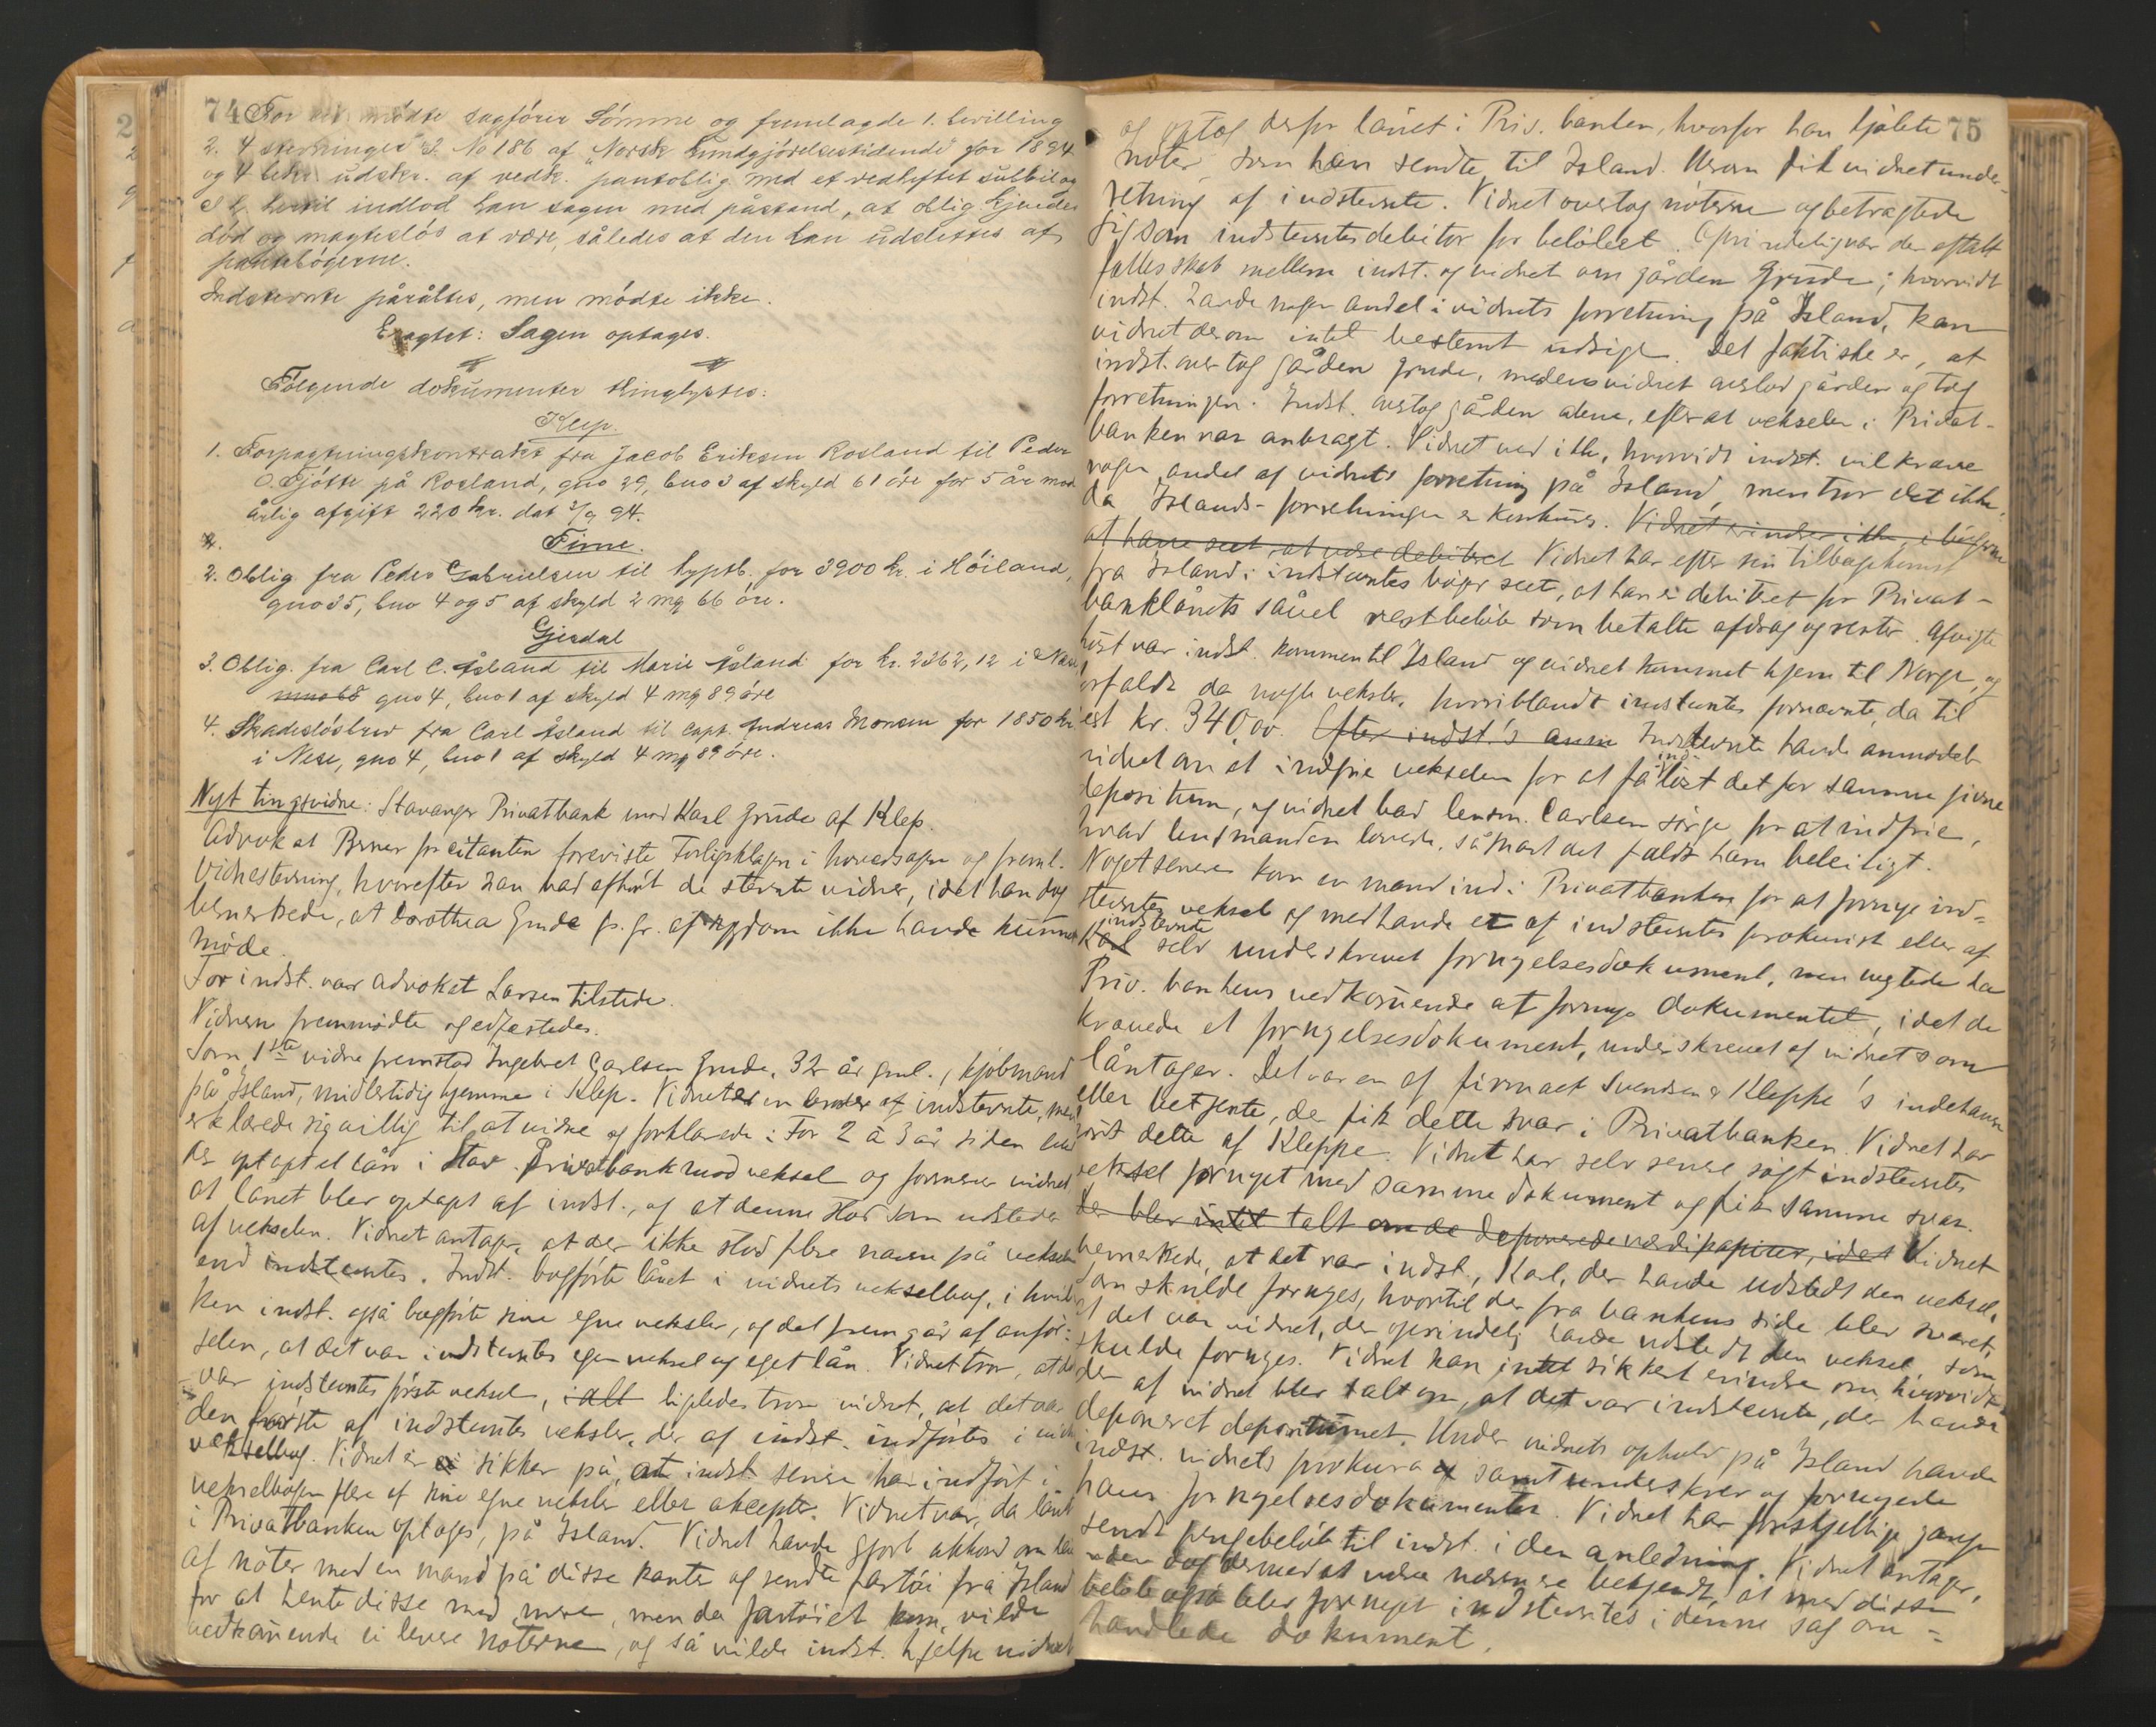 74
For cit. mødte sagfører Sömme og fremlagde 1. bevilling
2. 4 stevninger 3. No 186 af "Norsk kundgjörelsestidende" for 1894
og 4 bekr. udskr. af vedk. pantoblig med et vedheftet
hertil indlod han sagen med påstand, at oblig kjendes
död og magteslös at være, således at den kan udslettes af
pantebögerne.
Indstevnte påråbtes, men mödte ikke.
Eragtet: Sagen optages.
Fölgende dokumenter tinglystes:
Klep.
1. Forpagtningskontrakt fra Jacob Eriksen Rosland til Peder
O. Tjötte på Rosland, gno 29, bno 3 af skyld 61 öre for 5 år mod
årlig afgift 220 kr. dat 3/9 94.
Time.
2. Oblig fra Peder Gabrielsen til hyptb. for 3900 kr. i Höiland,
gno 35, bno 4 og 5 af skyld 2 mg 66 öre.
Gjesdal
3. Oblig. fra Carl C. Åsland til Marie Åsland for kr. 2362,12 i Nese
gno 4, bno 1 af skyld 4 mg 89 öre
4. Skadeslösbrev fra Carl Åsland til Capt. Andreas Monsen for 1850 kr.
i Nese, gno 4, bno 1 af skyld 4 mg 89 öre.
Nyt tingsvidne: Stavanger Privatbank mod Karl Grude af Klep.
Advokat Berner for citanten foreviste Forligsklagen i hovedsagen og freml.
Vidnestevning, hvorefter han bad afhört de stevnte vidner, idet han dog
bemerkede, at Dorothea Grude p. gr. af sygdom ikke havde kunnet
möde.
For indst. var advokat Larsen tilstede.
Vidnerne fremmödte og edfæstedes.
Som 1ste vidne fremstod Ingebret Carlsen Grude, 32 år gml., kjöbmand
på Island, midlertidig hjemme i Klep. Vidnet er en broder af indstevnte, men
erklærede sig villig til at vidne og forklarede: For 2 à 3 år siden blev
der optaget et lån i Stav. Privatbank mod veksel og formener vidnet
at lånet blev optaget af indst., og at denne stod som udsteder
af vekselen. Vidnet antager, at der ikke stod flere navne på vekselen
end indstevntes. Indst. bogförte lånet i vidnets vekselbog, i hvil-
ken indst. også bogförte sine egne veksler, og det fremgår af anför-
selen, at det var indstevntes egen veksel og eget lån. Vidnet tror, at det
var indstevntes förste veksel, ialt ligeledes tror vidnet, at det var
den förste af indstevntes veksler, der af indst. indförtes i vidnets
vekselbog. Vidnet er ei sikker på, at indst. senere har indfört i
vekselbogen flere af sine egne veksler eller akcepter. Vidnet var, da lånet
i Privatbanken optoges, på Island. Vidnet havde gjort akkord om
af nöter med en mand på disse kanter og sendte fartöi fra Island
for at hente disse med mere, men da fartöiet kom, vilde
vedkommende ei levere nöterne, og så vilde indst. hjelpe vidnet
75
og optog derfor lånet i Priv. banken, hvorfor han kjöbte
nöter, som han sendte til Island. Herom fik vidnet under-
retning af indstevnte. Vidnet overtog nöterne og betragtede
sig som indstevntes debitor for belöbet. Oprindelig var der aftalt
fællesskab mellem indst. og vidnet om gården Grude; hvorvidt
indst. havde nogen andel i vidnets forretning på Island, kan
vidnet derom intet bestemt udsige. Det faktiske er, at
indst. overtog gården Grude, medens vidnet avslod gården og tog
forretningen. Indst. overtog gården alene, efter at vekselen i Privat-
banken var anbragt. Vidnet ved ikke, hvorvidt indst. vil kræve
nogen andel af vidnets forretning på Island, men tror det ikke,
da Islands-forretningen er konkurs. Vidnet erindrer ikke, i bögerne
at have seet, at være debiteret Vidnet har efter sin tilbagekomst
fra Island i indstevntes böger seet, at han er debiteret for Privat-
banklånets såvel restbelöb som betalte afdrag og renter. Afvigte
höst var indst. kommen til Island og vidnet kommet hjem til Norge, og
forfaldt da nogle veksler, hvoriblandt indstevntes fornævnte, da til
rest kr. 340,00. Efter indst.'s anm Indstevnte havde anmodet
vidnet om at indfrie vekselen for at få indlöst det for samme givne
depositum, og vidnet bad lensm. Carlsen sörge for at indfrie,
hvad lensmanden lovede, så snart det faldt ham beleiligt.
Noget senere kom en mand ind i Privatbanken for at fornye ind-
stevntes veksel og medhavde et af indstevntes prokurist eller af
Karl indstevnte selv underskrevet fornyelsesdokument, men negtede da
Priv. bankens vedkommende at fornye dokumentet, idet de
krævede et fornyelsesdokument, underskrevet af vidnet som
låntager. Det var en af firmaet Svendsen & Kleppe's indehavere
eller betjente, der fik dette svar i Privatbanken. Vidnet har
hört dette af Kleppe. Vidnet har selv senere sögt indstevntes
veksel fornyet med samme dokument og fik samme svar.
Der blev intet talt om de deponerede værdipapirer, idet Vidnet
bemerkede, at det var indst., Karl, der havde udstedt den veksel,
som skulde fornyes, hvortil der fra bankens side blev svaret,
at det var vidnet, der oprindelig havde udstedt den veksel, som
skulde fornyes. Vidnet kan intet sikkert erindre om, hvorvidt
der af vidnet blev talt om, at det var indstevnte, der havde
deponeret depositumet. Under vidnets ophold på Island havde
indst. vidnets prokura og samt underskrev og fornyede
hans fornyelsesdokumenter. Vidnet har forskjellige gange
sendt pengebelöb til indst. i den anledning. Vidnet antager,
uden dog dermed at være nærmere bekjendt, at med disse
belöb også blev fornyet indstevntes i denne sag om-
handlede dokument.